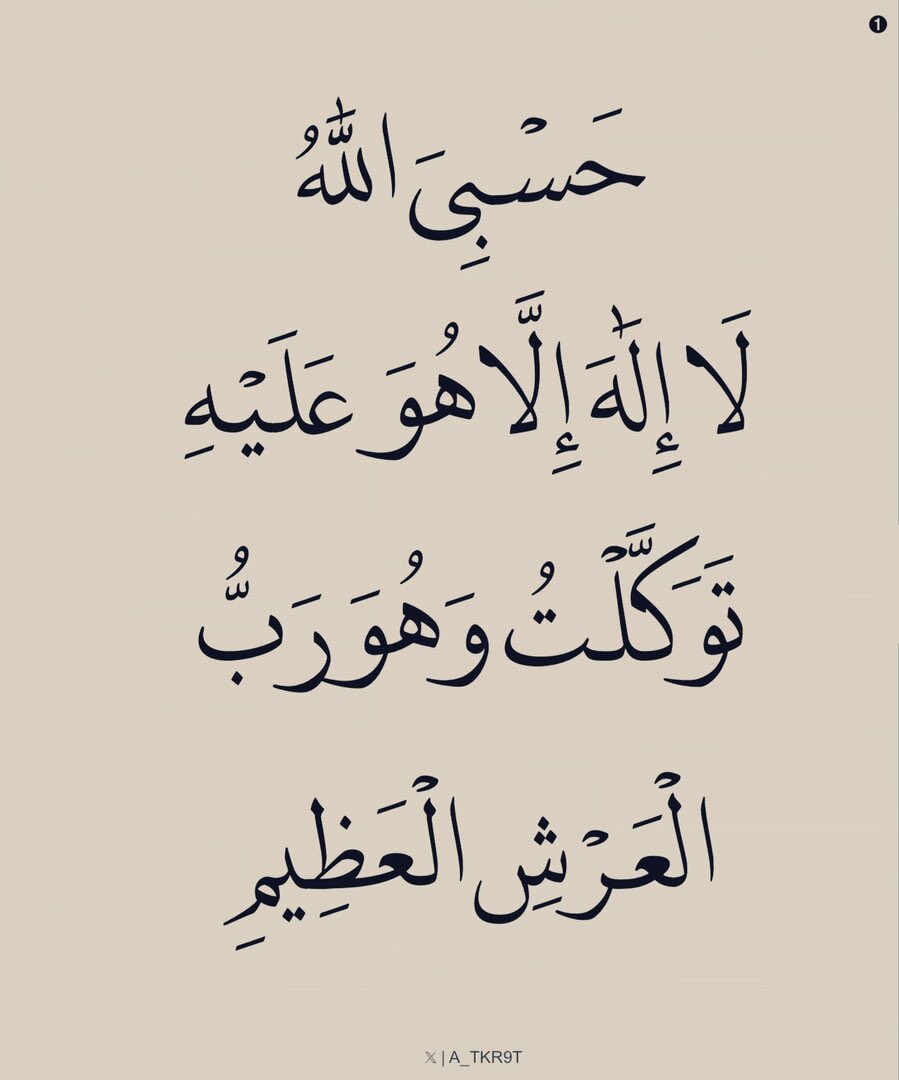 ❶
حَسْبِىَ اللّٰهُ
لَا إِلٰهَ إِلَّا هُوَ عَلَيْهِ
تَوَكَّلْتُ وَهُوَ رَبُّ
الْعَرْشِ الْعَظِيمِ
𝕏 | A_TKR9T